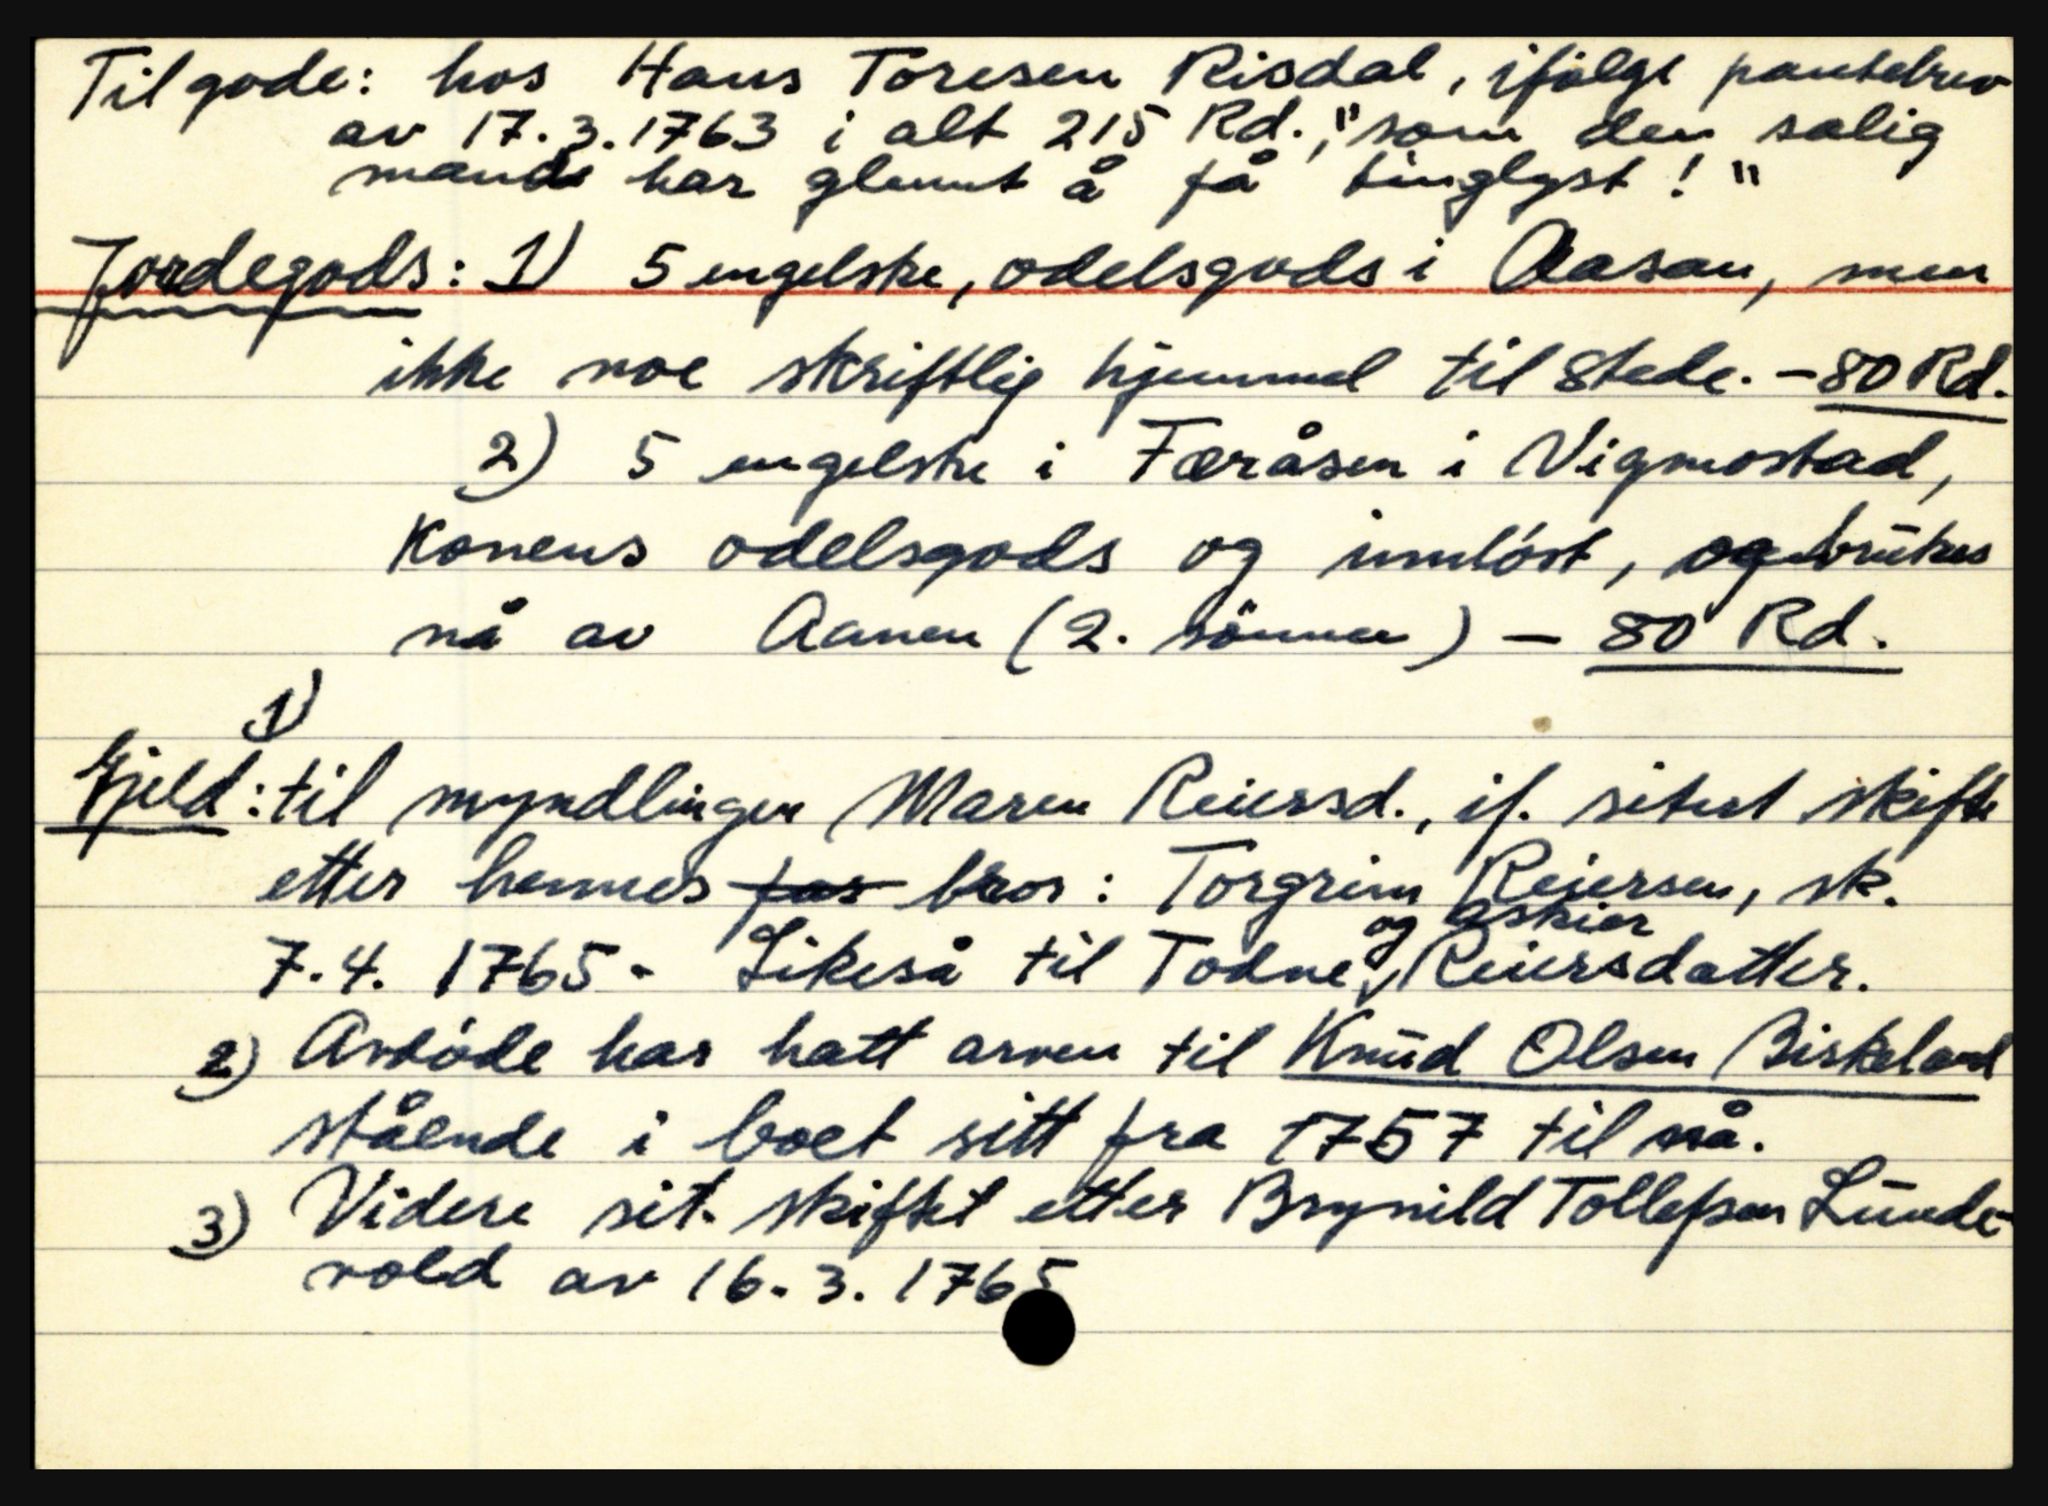 Tilgode: hos Hans Toresen Risdal, ifølge pantebrev
av 17.3.1763 i alt 215 Rd., "som den salig
mande har glemt å få tinglyst!"
Jordegods: 1) 5 engelske, odelsgods i Aasan, men
ikke noe skriftlig hjemmel til stede. - 80 Rd.
2) 5 engelske i Færåsen i Vigmostad,
Konens odelsgods og innløst, og brukes
nå av Aanen (2. sønnen) - 80 Rd.
1)
Gjeld: til myndlingen Maren Reiersd., if. sitert skifte
etter hennes far bror: Torgrim Reiersen, sk.
og Askier
7.4. 1765 - Likeså til Todne, Reiersdatter.
2) Avdøde har hatt arven til Knud Olsen Birkeland
stående i boet sitt fra 1757 til nå.
3) Videre sit. skiftet etter Brynild Tollefsen Lunde-
vold av 16.3.1765